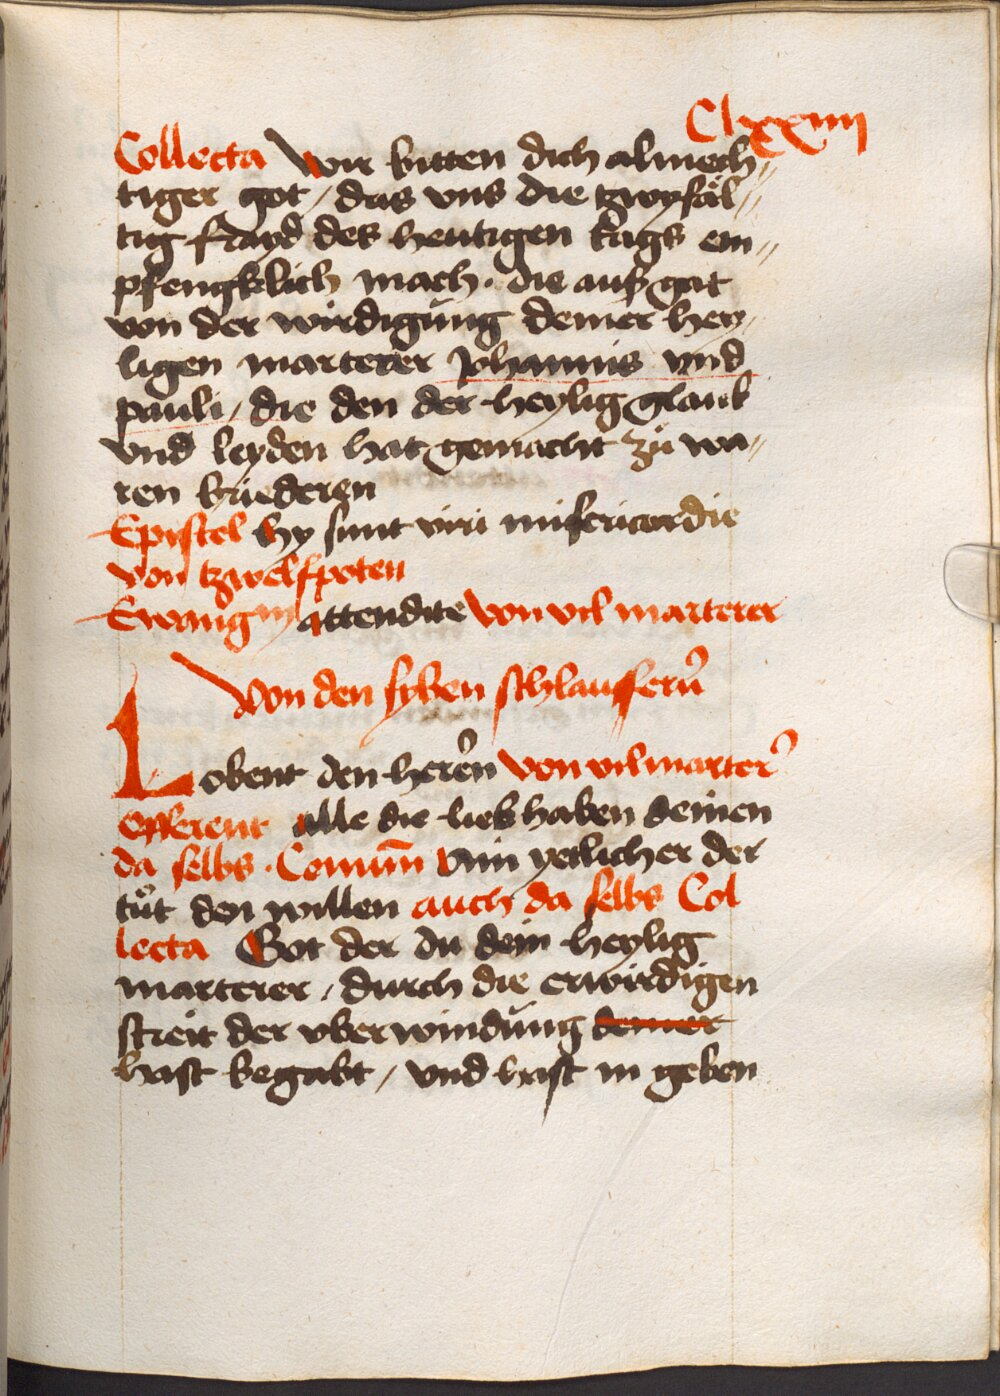 Clxxiiii
Collecta Wir bitten dich almech„
tiger got / das vns die tzwyfäl„
tig frayd des heutigen tags em„
pfengklich mach · die auß gat
von der wirdigung deiner hey„
ligen marterer Johannis vnd
pauli / die den der heylig glaub
vnd leyden hat gemacht zů wa„
ren brüederen
Epistel hy sunt viri misericordie
von tzwelfpoten
Ewangm attendite von vil marterer
Von den syben schlauffern̄
Lobent den heren̄ von vil marter᾽
Offerent alle die lieb haben deinen
da selbs · Comum̄ Ain yetlicher der
tůt den willen auch da selbs Col
lecta Got der du dein heylig
marterer / durch die erwirdigen
streit der vberwindung deiner
hast begabt / vnd hast in geben